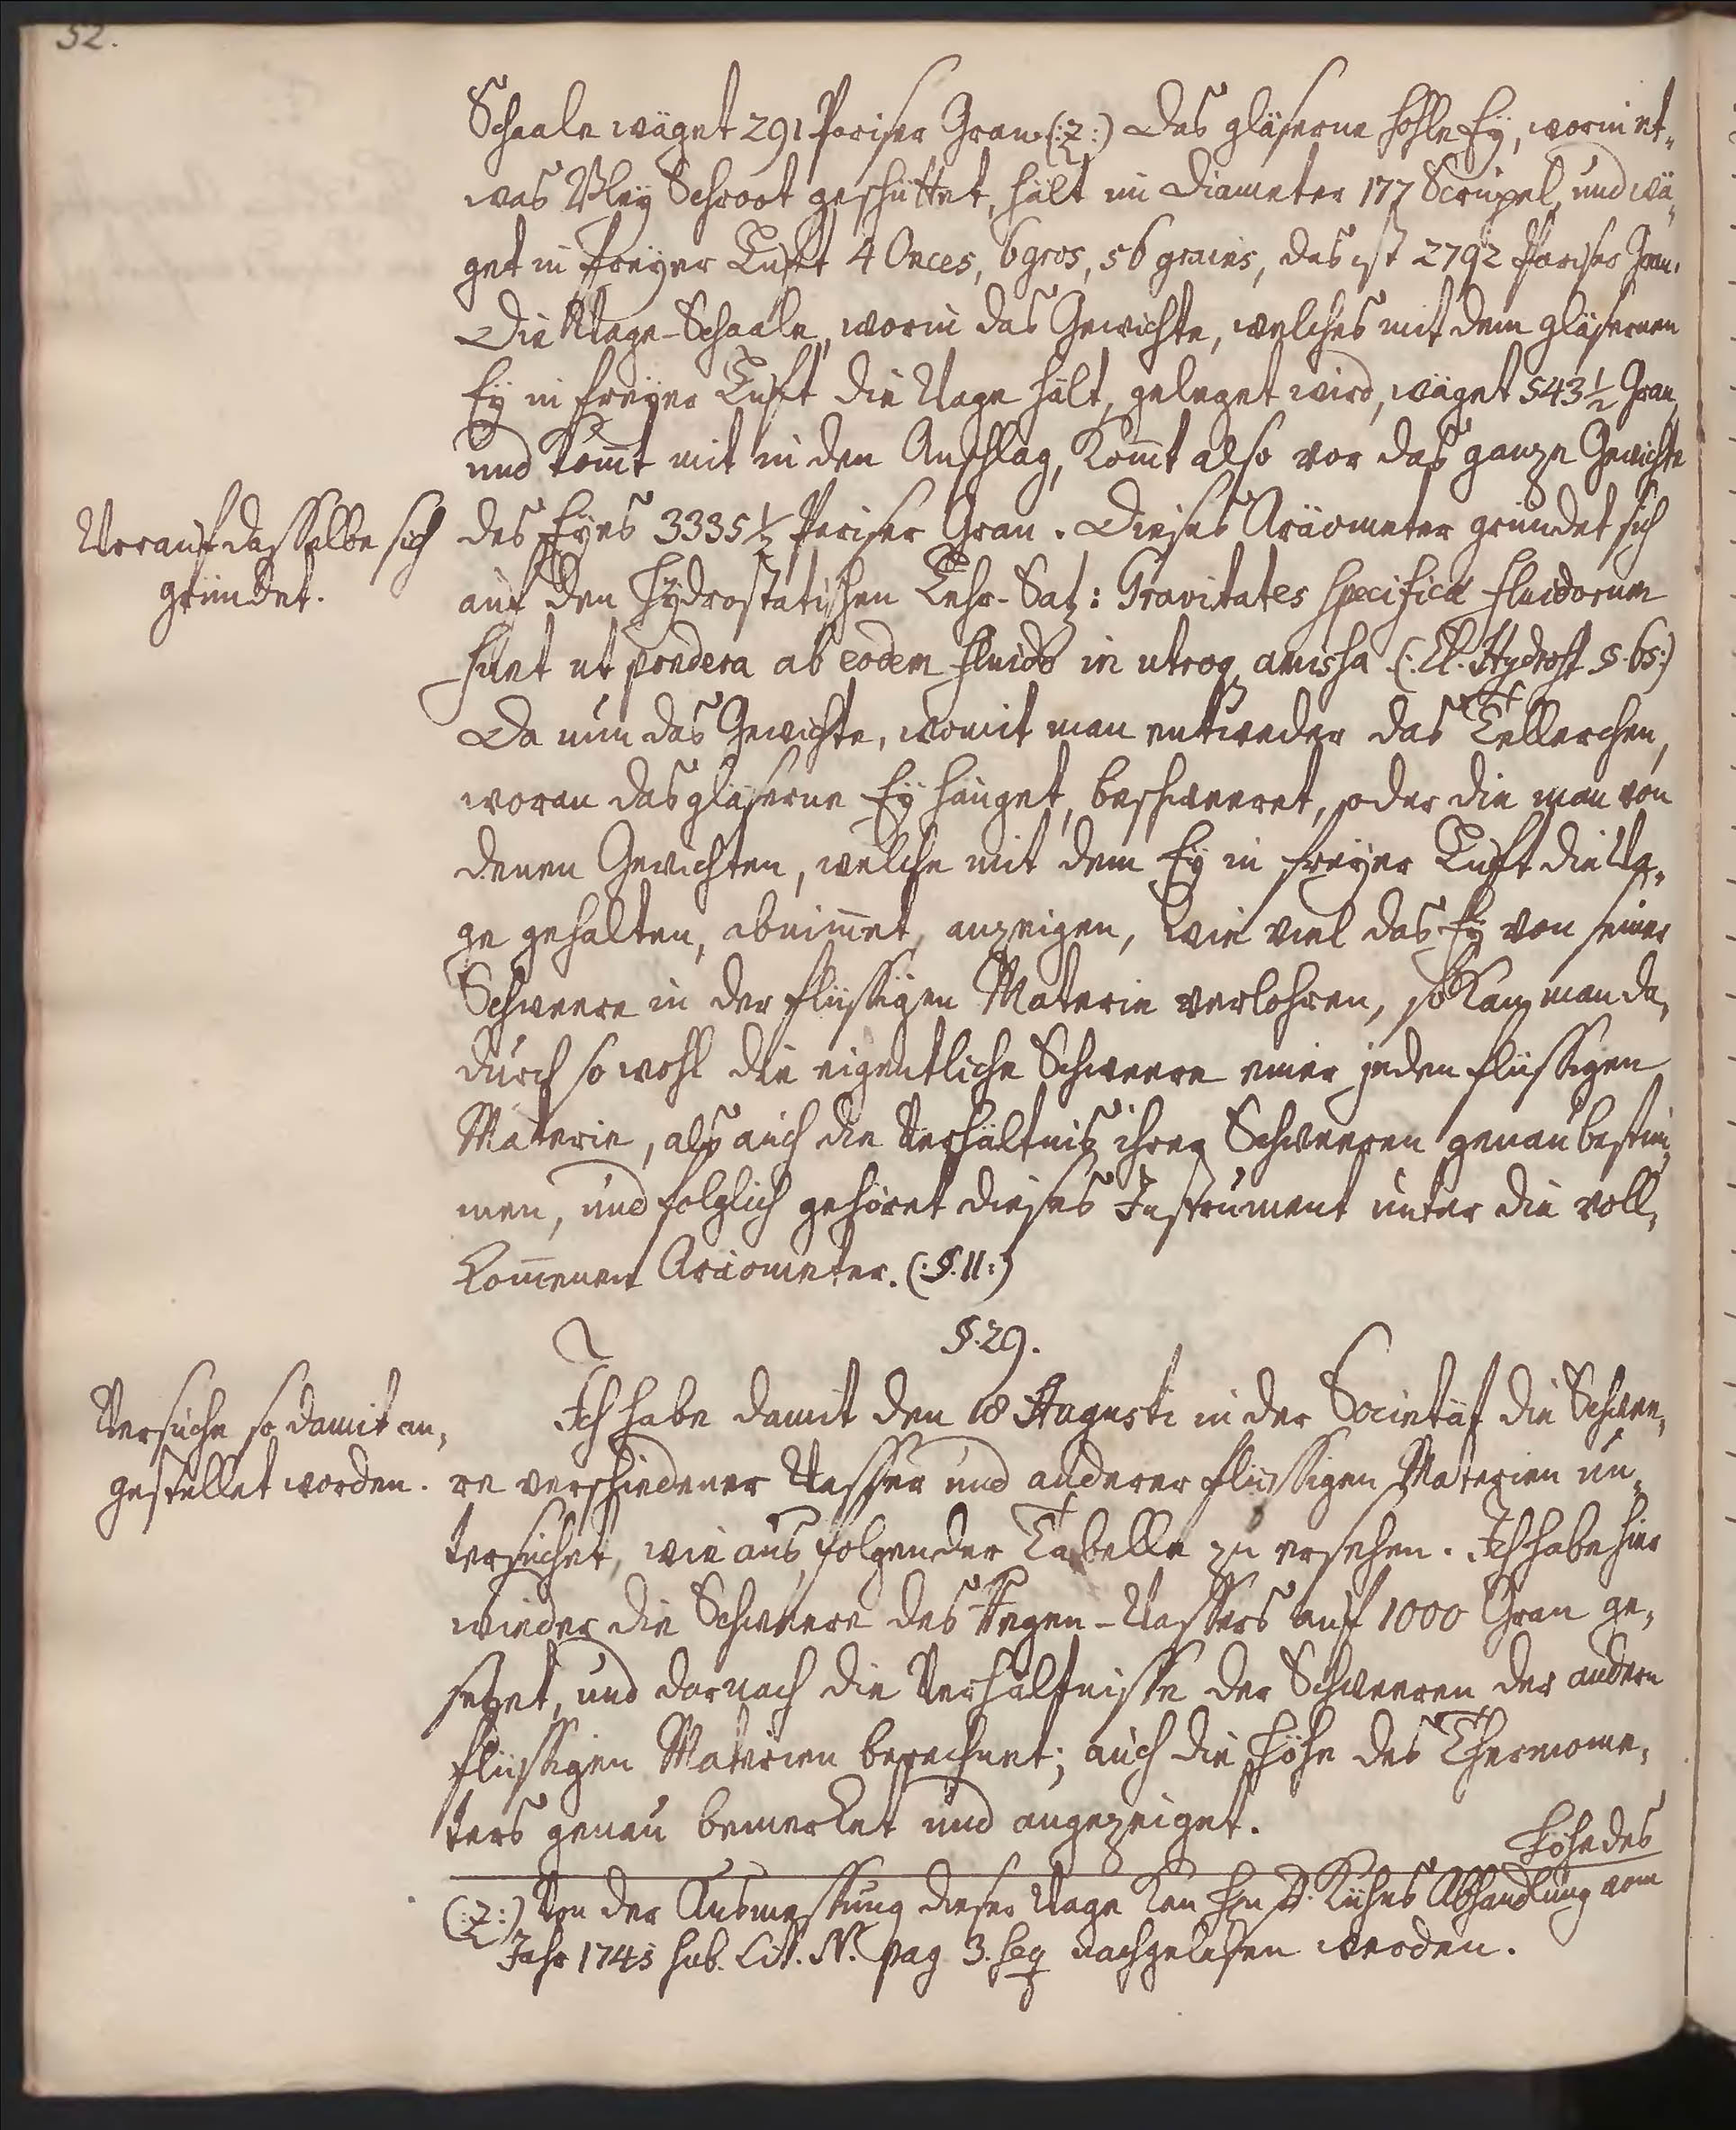 52.
Schaale wäget 291 Pariser Gran (:z:) Das gläserne hohle Ey, worin et-
was Bley Schroot geschüttet, hält im Diameter 177 Scrupel, und wä-
get in freyer Luft 4 Onces, 6 gros, 56 grains, das ist 2792 Pariser Gran.
Die Wage-Schaale, worin das Gewichte, welches mit dem gläsernen
Ey in freyer Luft die Wage hält, geleget wird, wäget 543½ Gran,
und kom̄t mit in den Anschlag, kom̄t also vor das ganze Gewichte
Worauf dasselbe sich
gründet.
des Eyes 3335½ Pariser Gran. Dieses Aräometer gründet sich
auf den Hydrostatischen Lehr-Satz: Gravitates specificæ fluidorum
sunt ut pondera ab eodem fluido in utroq amissa (:El. Hydrost §. 65:)
Da nun das Gewichte, womit man entweder das Tellerchen,
woran das gläserne Ey hänget, beschweeret, oder die man von
denen Gewichten, welche mit dem Ey in freyer Luft die Wa-
ge gehalten, abnim̄et, anzeigen, wie viel das Ey von seiner
Schweere in der flüssigen Materie verlohren, so kan man da-
durch so wohl die eigentliche Schweere einer jeden flüssigen
Materie, als auch die Verhältnis ihrer Schweeren genau bestim-
men, und folglich gehöret dieses Instrument unter die voll-
kom̄enen Aräometer. (:§.11:)
§.29.
Versuche so damit an-
gestellet worden.
Ich habe damit den 18 Augusti in der Societät die Schwee-
re verschiedener Wasser und anderer flüssigen Materien un-
tersuchet, wie aus folgender Tabelle zu ersehen. Ich habe hier
wieder die Schweere des Regen-Wassers auf 1000 Gran ge-
setzet, und darnach die Verhältnisse der Schweeren der andern
flüssigen Materien berechnet; auch die Höhe des Thermome-
ters genau bemerket und angezeiget.
Höhe des
(:z:) Von der Ausmessung dieser Wage kan Hrn D. Kühns Abhandlung vom
Jahr 1745 sub. Lit. N. pag 3. seq nachgelesen werden.